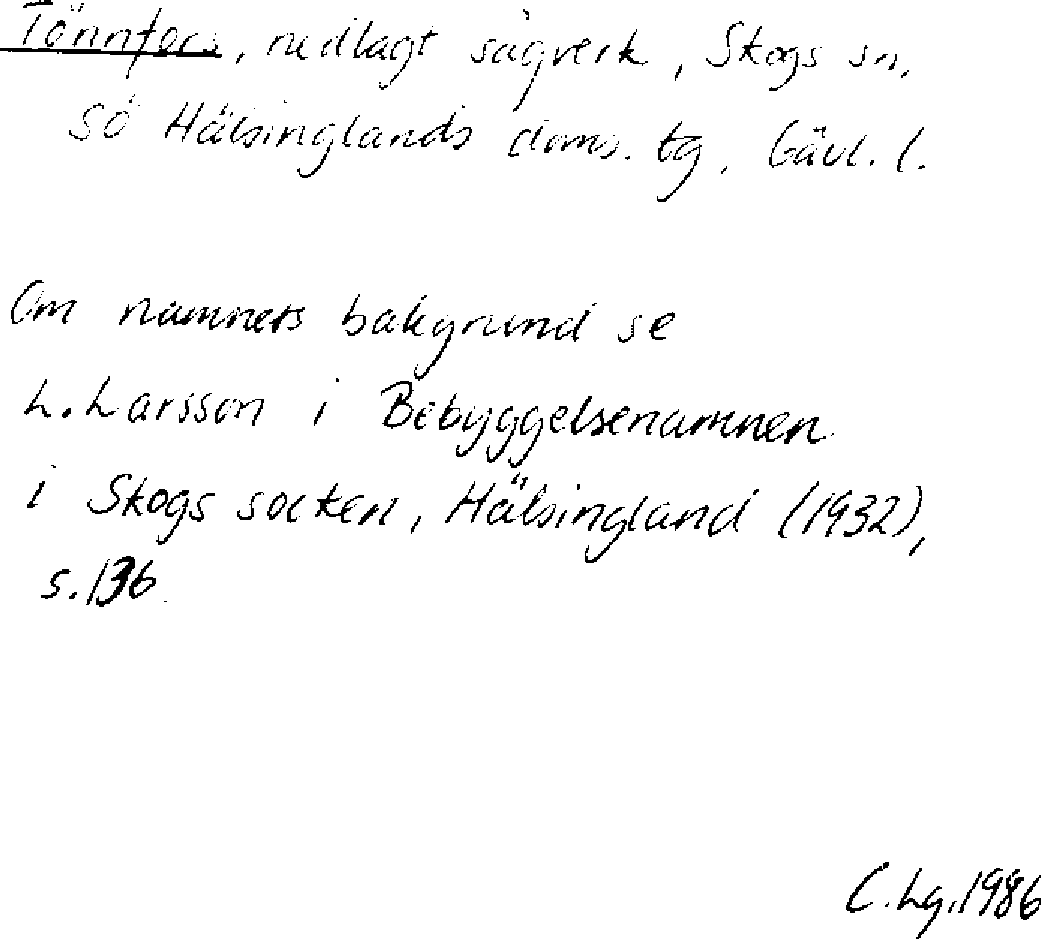 Tönnfors, nedlagt sågverk, Skogs sn,
Sö Hälsinglands doms. tg, Gävl. l.
Om namnets bakgrund se
L. Larsson i Bebyggelsenamnen
i Skogs socken, Hälsingland (1932),
s. 136
C. Lg. 1986